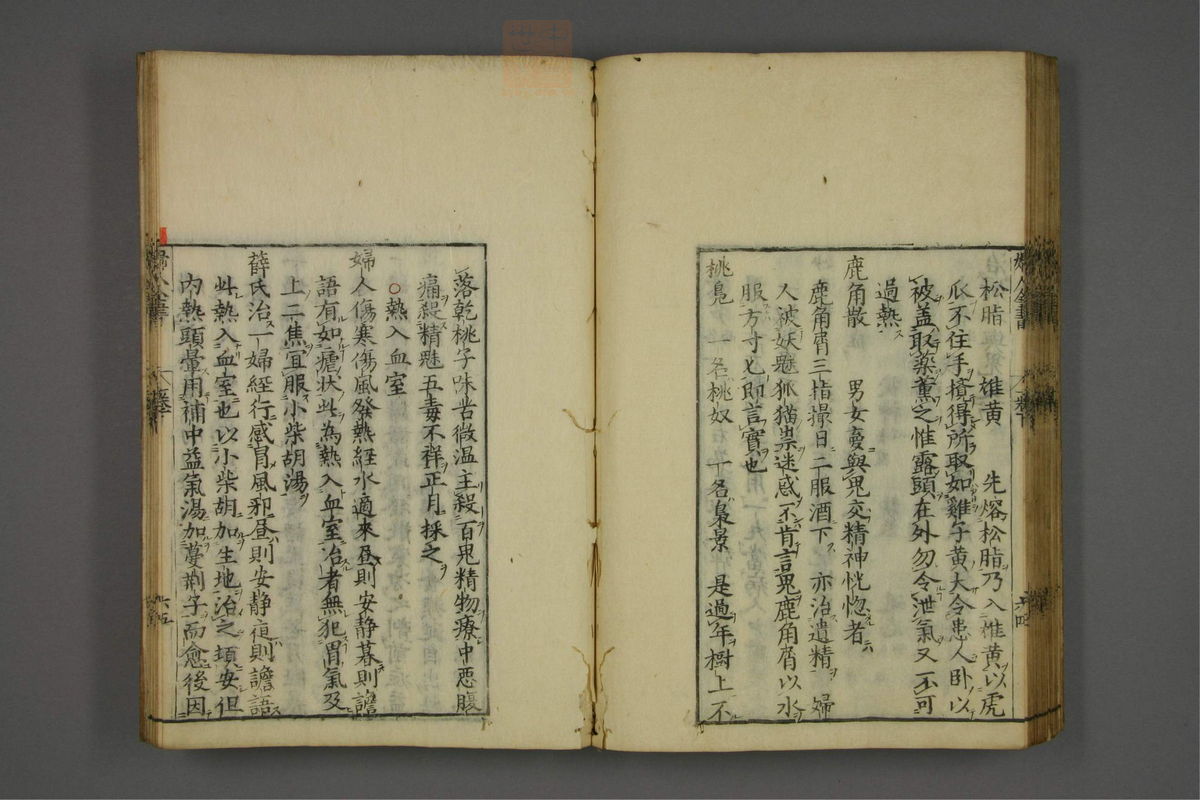 治松脂 雄黄 先熔松脂乃入雄黄以虎
爪不住手擯得所取如雞子黄大令患人卧以
被盖取薬薫之惟露頭在外勿令泄氣又不可
過熱
鹿角散 男女夢與鬼交精神恍惚者
鹿角屑三指撮日二服酒下 亦治遺精 婦
人被妖魅狐猫祟迷惑不肯言鬼鹿角屑以水
服方寸匕即言實也
桃梟 一名桃奴 一名梟景 是過年樹上不
落乾桃子味苦微温主殺百鬼精物療中悪腹
痛殺精魅五毒不祥正月採之
○熱入血室
婦人傷寒傷風發熱經水適来昼則安静暮則譫
語有如瘧状此為熱入血室治者無犯胃氣及
上二焦宜服小柴胡湯
薛氏治一婦経行感冐風邪昼則安静夜則譫語
此熱入血室也以小柴胡加生地治之頓安但
内熱頭暈用補中益氣湯加蔓荊子而愈後因